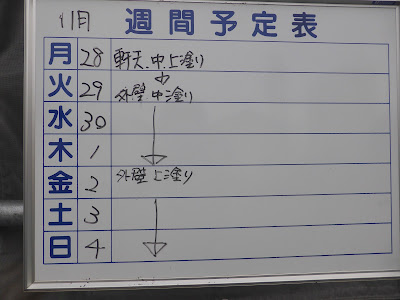 11月 週間予定表
月 28 軒天.中.上塗り
火 29 外壁 中塗り
水 30
木 1
金 2 外壁 上塗り
土 3
日 4